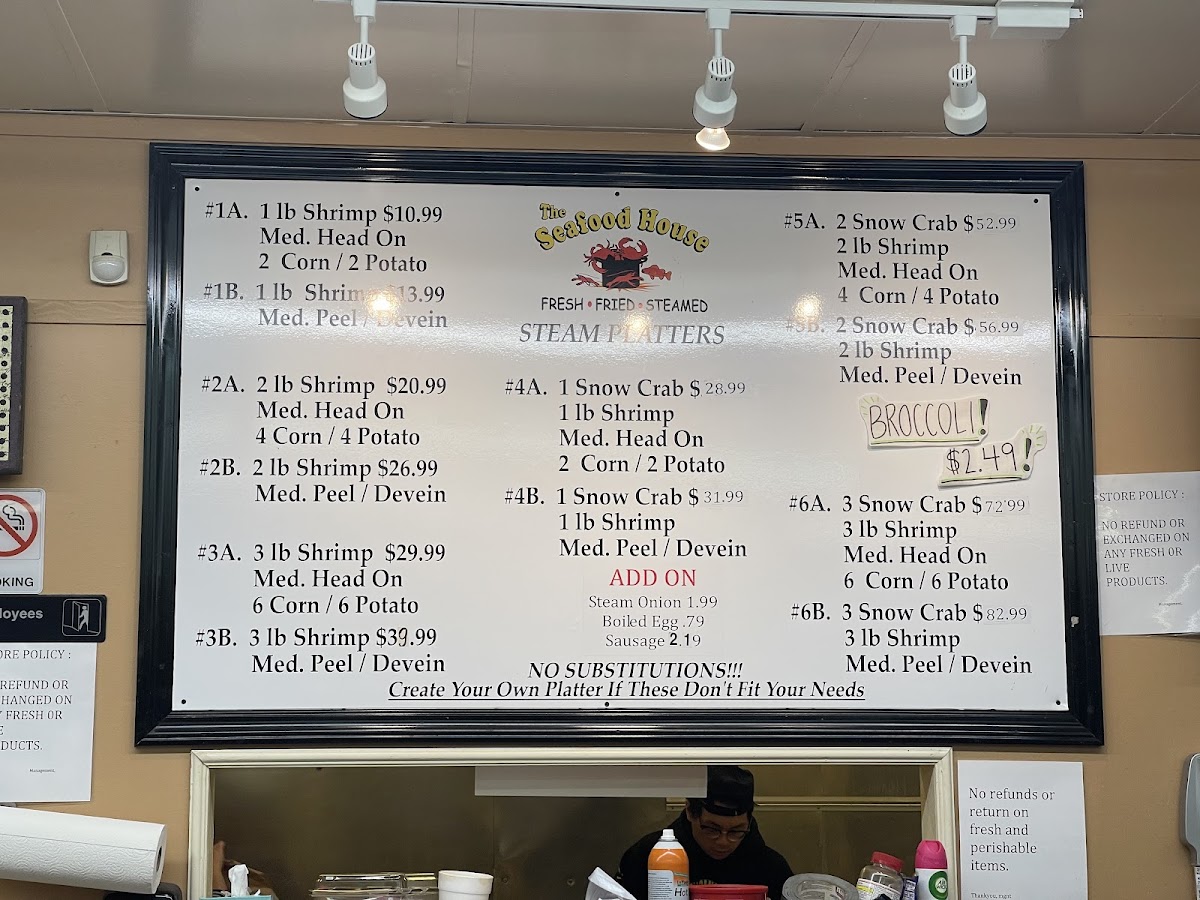 #1A. 1 lb Shrimp $10.99
Med. Head On
2 Corn / 2 Potato
#1B. 1 lb Shrimp $13.99
Med. Peel / Devein
#2A. 2 lb Shrimp $20.99
Med. Head On
4 Corn / 4 Potato
#2B. 2 lb Shrimp $26.99
Med. Peel / Devein
#3A. 3 lb Shrimp $29.99
Med. Head On
6 Corn / 6 Potato
#3B. 3 lb Shrimp $39.99
Med. Peel / Devein
The
Seafood House
FRESH • FRIED • STEAMED
STEAM PLATTERS
#4A. 1 Snow Crab $ 28.99
1 lb Shrimp
Med. Head On
2 Corn / 2 Potato
#4B. 1 Snow Crab $ 31.99
1 lb Shrimp
Med. Peel / Devein
ADD ON
Steam Onion 1.99
Boiled Egg .79
Sausage 2.19
#5A. 2 Snow Crab $52.99
2 lb Shrimp
Med. Head On
4 Corn / 4 Potato
#5B. 2 Snow Crab $56.99
2 lb Shrimp
Med. Peel / Devein
BROCCOLI!
$2.49!
#6A. 3 Snow Crab $72.99
3 lb Shrimp
Med. Head On
6 Corn / 6 Potato
#6B. 3 Snow Crab $82.99
3 lb Shrimp
Med. Peel / Devein
NO SUBSTITUTIONS!!!
Create Your Own Platter If These Don't Fit Your Needs
OKING
loyees
ORE POLICY :
REFUND OR
HANGED ON
FRESH 0R
E
DUCTS.
Management.
STORE POLICY :
NO REFUND OR
EXCHANGED ON
ANY FRESH 0R
LIVE
PRODUCTS.
Management.
No refunds or
return on
fresh and
perishable
items.